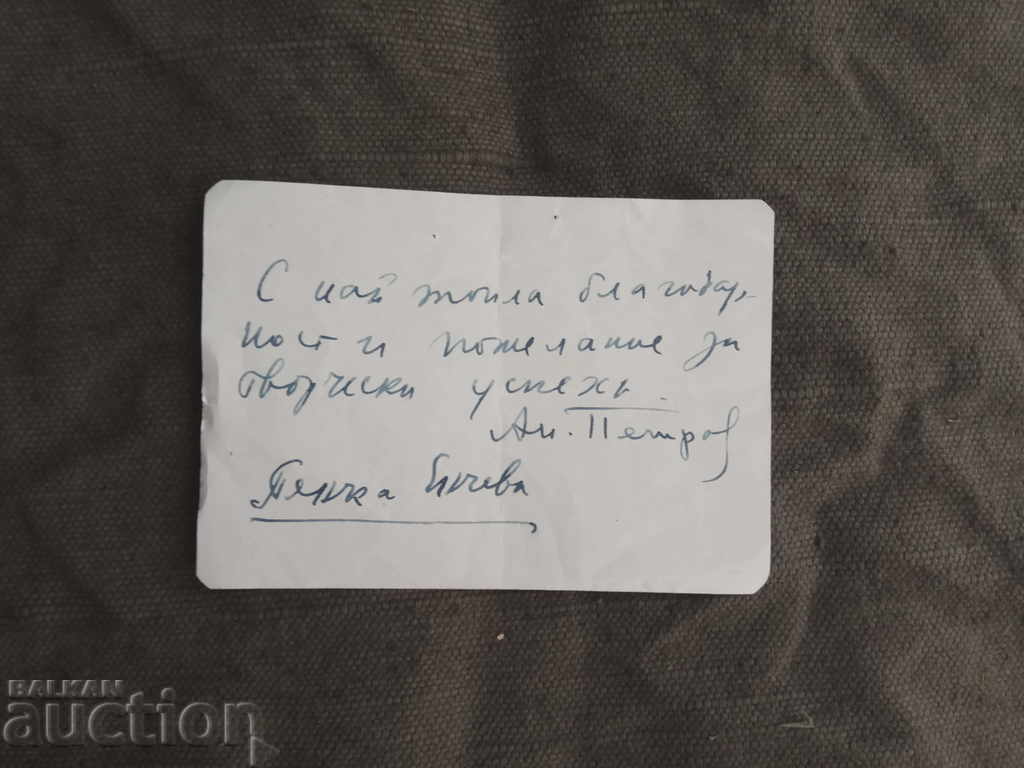 С най топла благодар,
ност и пожелание за
творчески успехи.
Ан. Петров
Пенка Енчева
BALKAN
auction